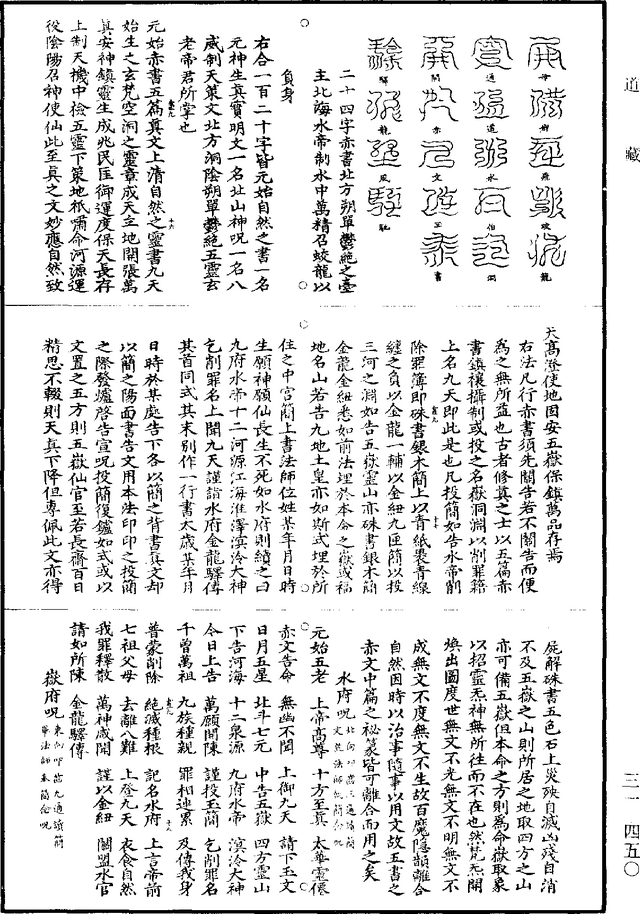 道藏
三一 四五〇
毋 樹 飛 玻 龍
通 道 水 伯 洞
開 赤 文 玉 書
驛 龍 風 馳
二十四字赤書北方朔單鬱絶之臺
主北海水帝制水中萬精召蛟龍以
負身
右合一百二十字皆元始自然之書一名
元神生真寶明文一名北山神呪一名八
威制天策文北方洞陰朔單鬱絶五靈玄
老帝君所掌也
元始赤書五篇真文上清自然之靈書九天
始生之玄梵空洞之靈章成天立地開張萬
真安神鎮靈生成兆民匡御運度保天長存
上制天機中檢五靈下策地祇嘯命河源運
役陰陽召神使仙此至真之文妙應自然致
天高澄使地固安五嶽保鎮萬品存焉
右法凡行赤書須先關告若不關告而便
為之無所益也古者修真之士以五篇赤
書鎮禳攝制或投之名嶽洞淵以削罪籍
上名九天即此是也凡投簡如告水帝削
除罪簿即硃書銀木簡上以青紙裹青線
纏之負以金龍一輔以金紐九匝簡以投
三河之淵如告五嶽靈山亦硃書銀木簡
金龍金紐悉如前法埋於本命之嶽或福
地名山若告九地土皇亦如斯式埋於所
住之中宮簡上書法師位姓某年月日時
生願神願仙長生不死如水府則續之曰
九府水帝十二河源江海淮澤溟泠大神
乞削罪名上聞九天謹詣水府金龍驛傳
其首同式其末别作一行書太歲某年月
日時於某處告下各以簡之背書真文却
以簡之陽面書告文用本法印印之投簡
之際發爐啓告宣呪投簡復爐如式或以
文置之五方則五嶽仙官至若長齋百日
精思不輟則天真下降但專佩此文亦得
屍解硃書五色石上災殃自滅凶殘自消
不及五嶽之山則所居之地取四方之山
亦可備五嶽但本命之方則為命嶽取象
以招靈炁神無所往而不在也然梵炁開
煥出圖度世無文不光無文不明無文不
成無文不度無文不生故百魔隱韻離合
自然因時以治事隨事以用文故五書之
赤文中篇之秘篆皆可離合而用之矣
水府呪
元始五老 上帝高尊 十方至真 太華靈僊
赤文告命 無幽不聞 上御九天 請下玉文
日月五星 北斗七元 中告五嶽 四方靈山
下告河海 十二泉源 九府水帝 溟泠大神
今日上告 萬願開陳 謹投玉簡 乞削罪名
千曾萬祖 九族種親 罪相連累 及傳我身
普蒙削除 絶滅種根 記名水府 上言帝前
七祖父母 去離八難 上登九天 衣食自然
我罪釋散 萬神咸聞 謹以金紐 關盟水官
請如所陳 金龍驛傳
嶽府呪